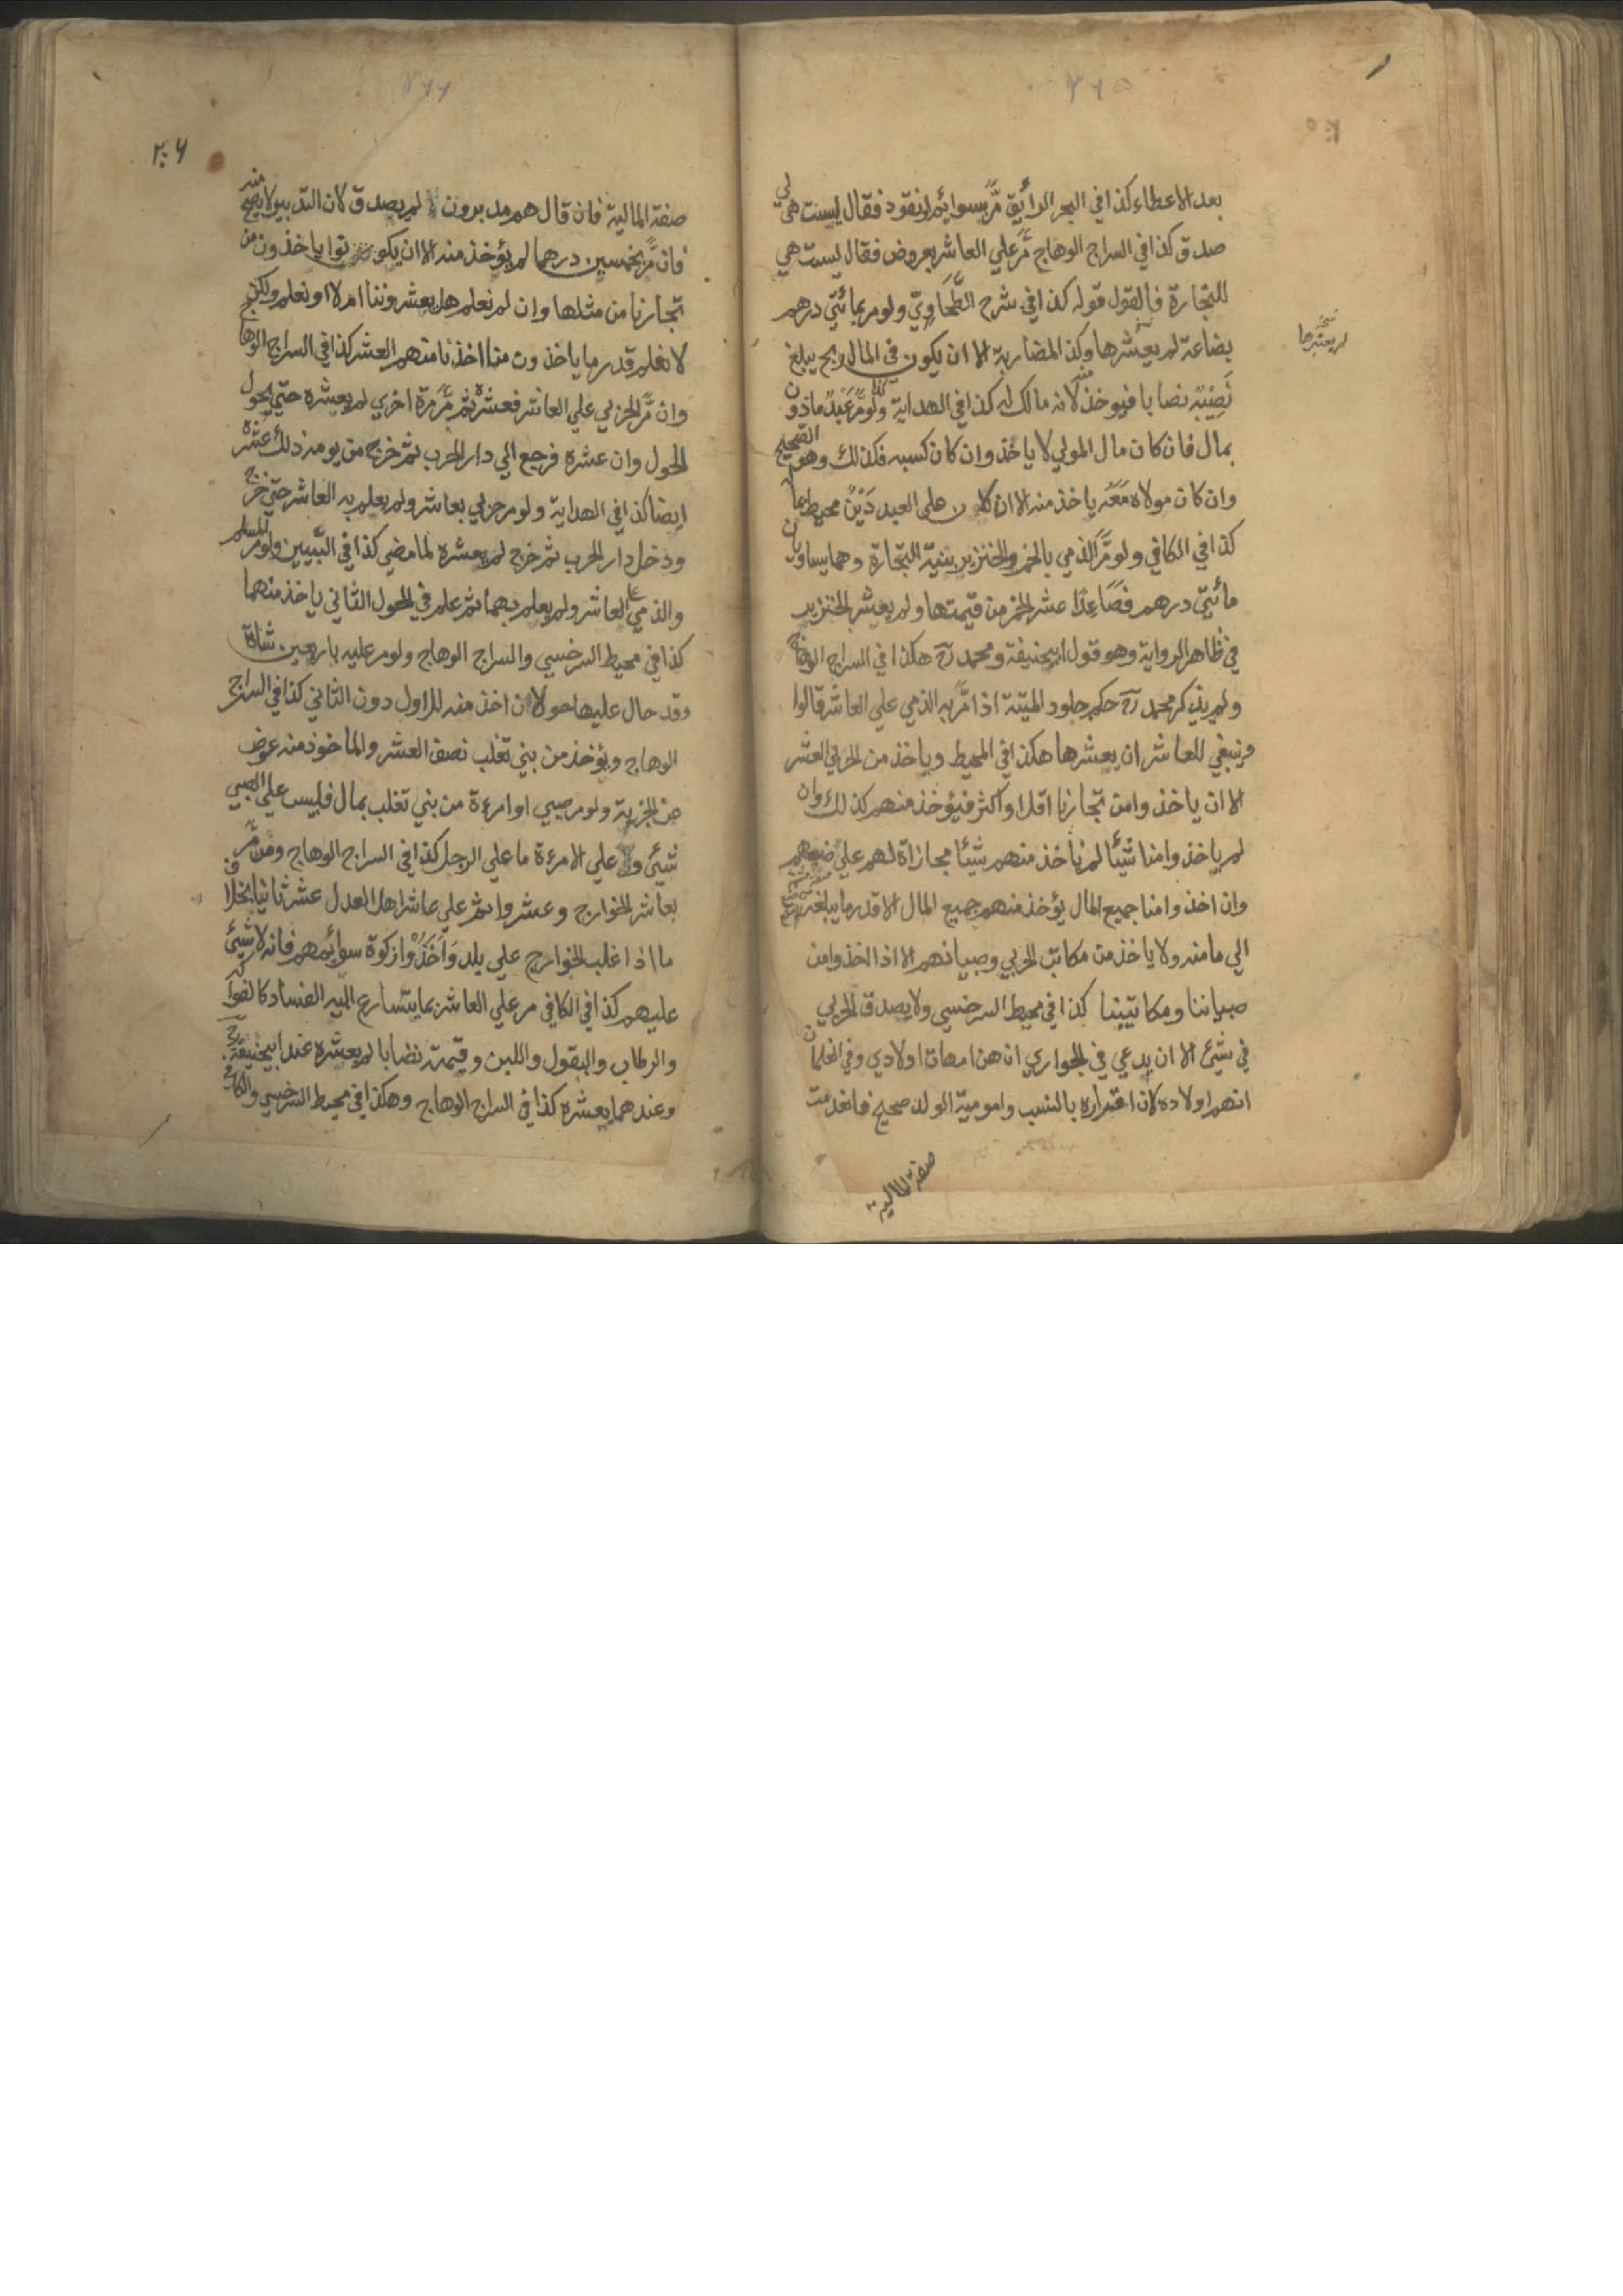 بعد الاعطاء كذا في البحر الرائق مرّ بسوائم او نقود فقال ليست هي لي
صدق كذا في السراج الوهاج مرّ علي العاشر بعروض فقال ليست هي
للتجارة فالقول قوله كذا في شرح الطَّحَاوِيّ ولو مر بمائتي درهم
بضاعة لم يعشرها وكذا المضاربة الا ان يكون في المال ربح يبلغ
نَصِيْبَه نصابا فيوخذ منه لانه مالك له كذا في الهداية ولو مرّ عَبْدٌ ماذون
بمال فان كان مال المولي لا ياخذ وان كان كسبه فكذلك وهو الصحيح
وان كان مولاه مَعَه ياخذ منه الا ان كان علي العبد دَيْنٌ محيط بماله
كذا في الكافي ولو مرّ الذمي بالخمر والخنزير بنية التجارة وهما يساويان
مائتي درهم فصَاعِدًا عشر الخمر من قيمتها ولم يعشر الخنزير
في ظاهر الرواية وهو قول ابيحنيفة ومحمد رح هكذا في السراج الوهاج
ولم يذكر محمد رح حكم جلود الميتة اذا مرّ به الذمي علي العاشر قالوا
وينبغي للعاشر ان يعشرها هكذا في المحيط وياخذ من الحربي العشر
الا ان ياخذوا من تجارنا اقل او اكثر فيؤخذ منهم كذلك وان
لم ياخذوا منا شيئًا لم ناخذ منهم شيئا مجازاة لهم علي صنيعهم
وان اخذوا منا جميع المال يؤخذ منهم جميع المال الا قدر ما يبلغه
الي مامنه ولا ياخذ من مكاتب الحربي وصبيانهم الا اذا اخذوا من
صبياننا ومكاتبينا كذا في محيط السرخسي ولا يصدق الحربي
في شئ الا ان يدعي في الجواري انهن امهات اولادي وفي الغلمان
انهم اولاده لان اقراره بالنسب وامومية الولد صحيح فانعدمت
صفة المالية
نسخة
لم يعتبرها
٢٠٦
صفة المالية فان قال هم مدبرون لم يصدق لان التدبير لا يصح منه
فان مرّ بخمسين درهما لم يؤخذ منه الا ان يكونوا ياخذون من
تجارنا من مثلها وان لم نعلم هل يعشروننا ام لا او نعلم ولكن
لا نعلم قدر ما ياخذون منا اخذنا منهم العشر كذا في السراج الوهاج
وان مرّ الحربي علي العاشر فعشره ثم مرّ مرة اخري لم يعشره حتي يحول
الحول وان عشره فرجع الي دار الحرب ثم خرج من يومه ذلك عشره
ايضا كذا في الهداية ولو مر حربي بعاشر ولم يعلم به العاشر حتي خرج
ودخل دار الحرب ثم خرج لم يعشره لما مضي كذا في التبيين ولو مر المسلم
والذمي علي العاشر ولم يعلم بهما ثم علم في الحول الثاني ياخذ منهما
كذا في محيط السرخسي والسراج الوهاج ولو مر عليه باربعين شاة
وقد حال عليها حولان اخذ منه للاول دون الثاني كذا في السراج
الوهاج ويؤخذ من بني تغلب نصف العشر والماخوذ منه عوض
عن الجزية ولو مر صبي او امرءة من بني تغلب بمال فليس علي الصبي
شيئ و علي الامرءة ما علي الرجل كذا في السراج الوهاج ومن مرّ
بعاشر الخوارج وعشروا ثم علي عاشر اهل العدل عشر ثانيا بخلاف
ما اذا غلب الخوارج علي بلد وَاَخَذُوْا زكوة سوائمهم فانه لا شئ
عليهم كذا في الكافي مر علي العاشر بما يتسارع اليه الفساد كالفواكه
والرطاب والبقول واللبن وقيمته نصابا لم يعشره عند ابيحنيفة رح
وعندهما يعشره كذا في السراج الوهاج وهكذا في محيط السرخسي والكافي